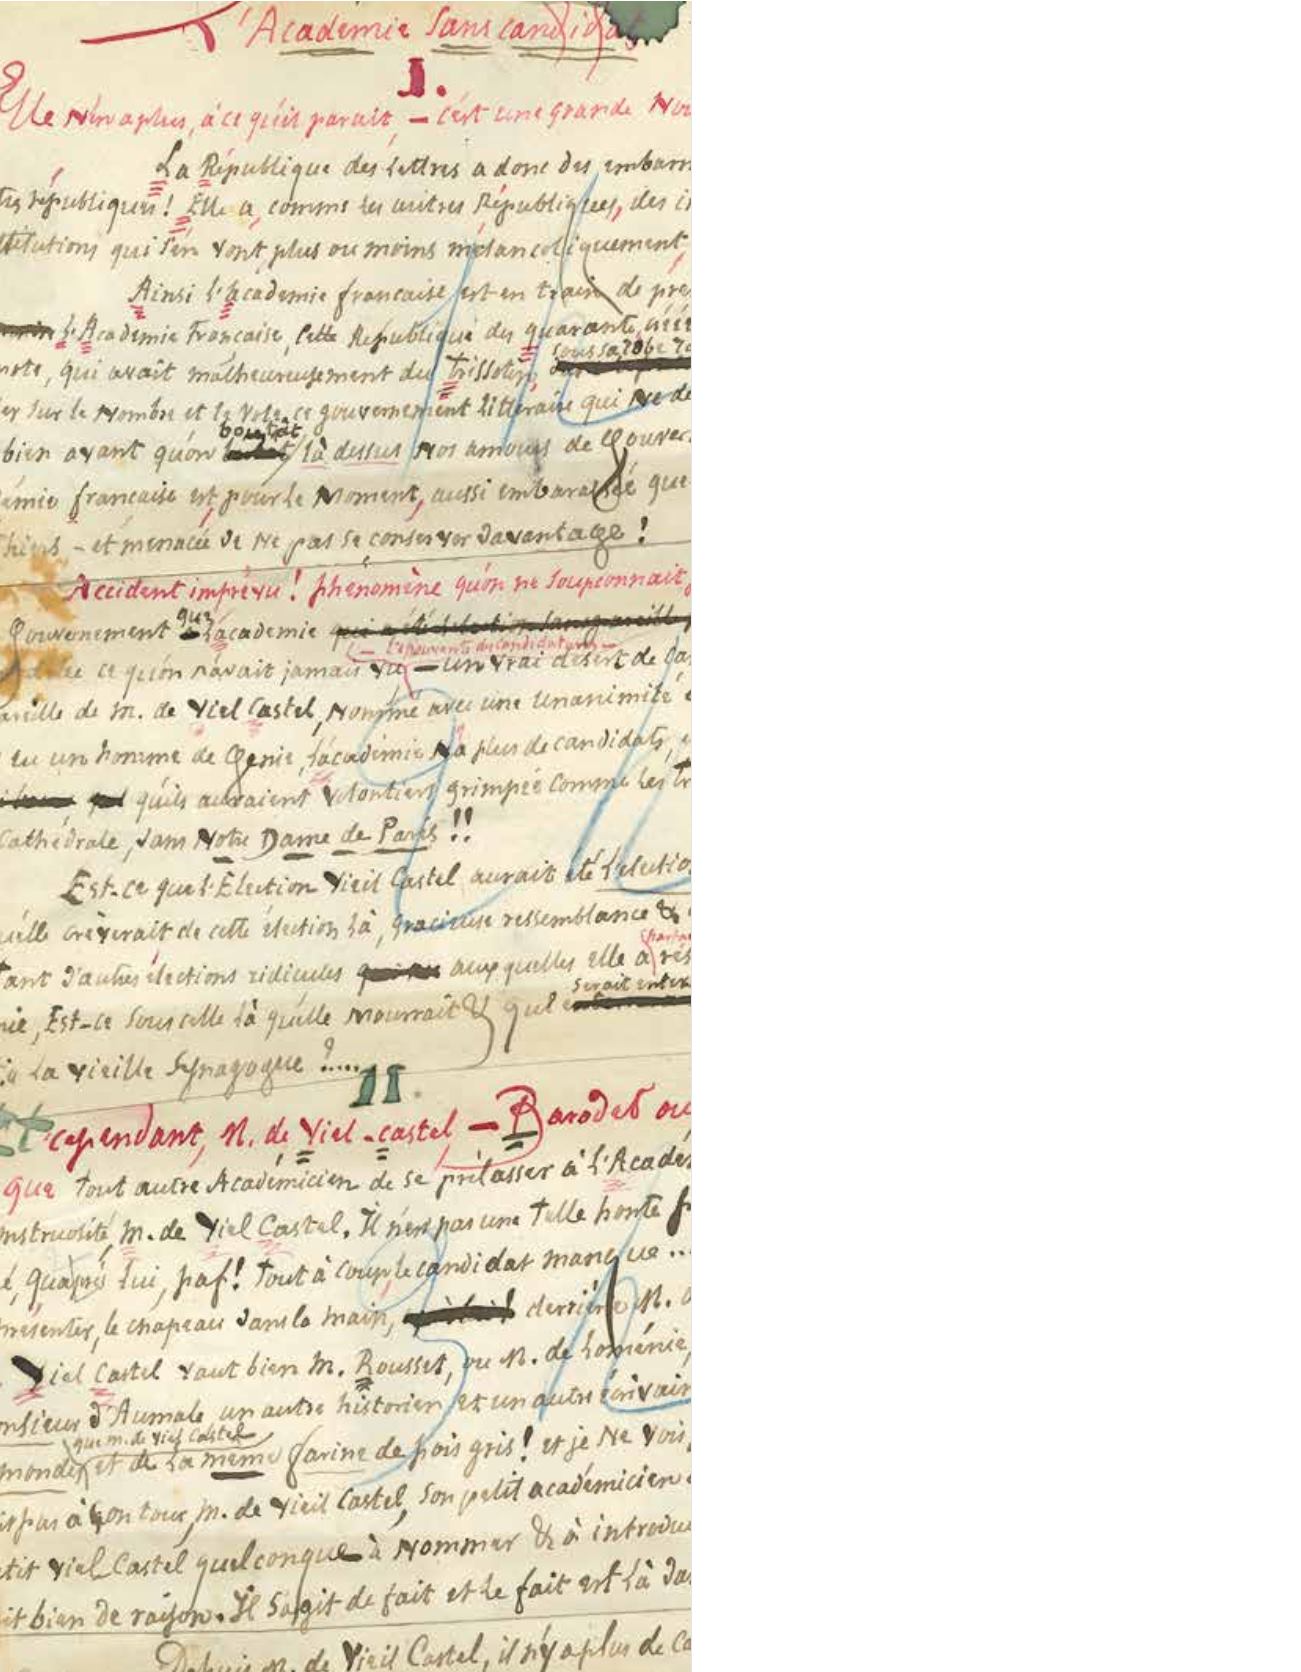 l'Académie sans candidats
I.
Elle n'en a plus, à ce qu'il parait, — c'est une grande
La République des lettres a donc des embarr
républiques! Elle a, comme les autres Républiques, des i
stitutions qui s'en vont, plus ou moins mélancoliquement,
Ainsi l'académie française est en train de
l'Académie Française, cette République des quarante,
qui avait malheureusement du Trissotin, sous sa robe
sur le Nombre et le Vote, ce gouvernement littéraire qui ne de
bien avant qu'on boutât là dessus nos amours de Gouver
émie française est, pour le Moment, aussi embarassée que
Thiers — et menacée de ne pas se conserver davantage!
Accident imprévu! phénomène qu'on ne soupçonnait
Gouvernement que l'académie
— l'épouvante des candidatures —
ce qu'on n'avait jamais vu — un vrai désert de Can
areille de M. de Viel Castel, Nommé avec une unanimité
eu un homme de Génie, l'académie n'a plus de candidats,
qu'ils auraient volontiers grimpée comme les tr
Cathédrale, dans Notre Dame de Paris!!
Est-ce que l'Élection Vieil Castel aurait été l'électio
u'elle crèverait de cette élection là, gracieuse ressemblance &
Tant d'autres élections ridicules auxquelles elle a rés
Est-ce sous celle là qu'elle mourrait & que serait enter
la vieille Synagogue?.....
II.
Et cependant, M. de Viel-castel — Barodet ou
que tout autre Académicien de se prélasser à l'Acadé
onstruosité, M. de Viel Castel. Il n'est pas une telle honte
é, qu'après lui, paf! Tout à coup le candidat manque...
présenter, le chapeau dans la main, derrière M.
Viel Castel vaut bien M. Rousset, ou M. de Loménie,
onsieur d'Aumale un autre historien et un autre écrivain
que M. de Viel Castel
monde, et de la même farine de pois gris! et je ne vois,
pas à son tour, M. de Vieil Castel, son petit académicien
etit Viel Castel quelconque à Nommer & à introdui
it bien de raison. Il s'agit de fait et le fait est là da
Depuis M. de Vieil Castel, il n'y a plus de Ca